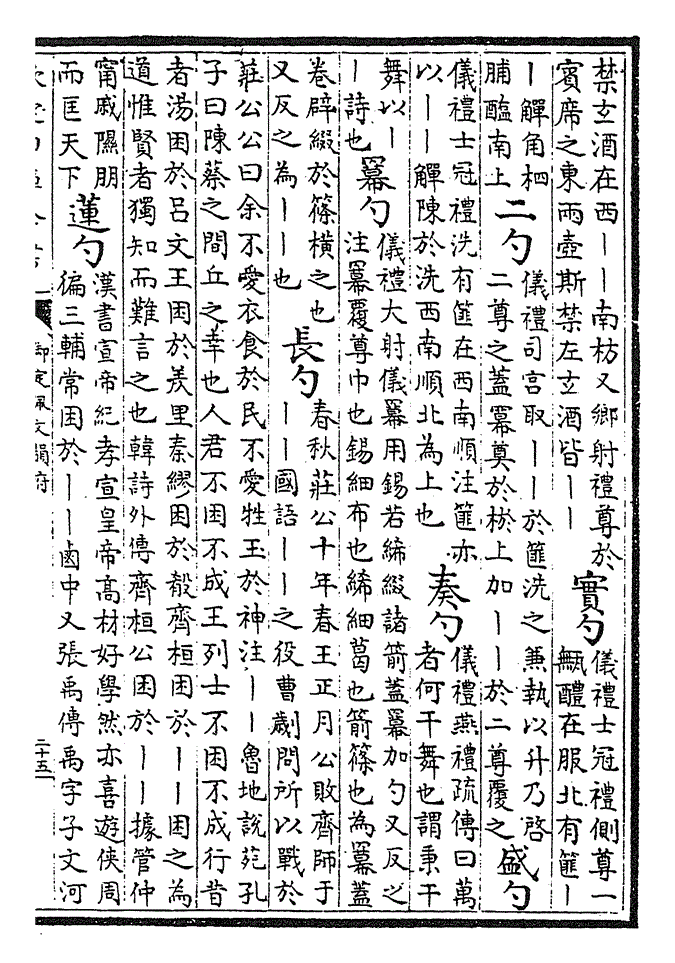 禁玄酒在西丨丨南枋又鄉射禮尊於
賓席之東兩壺斯禁左玄酒皆丨丨
實勺
儀禮士冠禮側尊一
甒醴在服北有篚丨
丨觶角柶
脯醢南上
二勺
儀禮司宫取丨丨於篚洗之兼執以升乃啓
二尊之蓋冪奠於棜上加丨丨於二尊覆之
盛勺
儀禮士冠禮洗有篚在西南順注篚亦
以丨丨觶陳於洗西南順北為上也
奏勺
儀禮燕禮疏傳曰萬
者何干舞也謂秉干
舞以丨
丨詩也
冪勺
儀禮大射儀冪用錫若絺綴諸箭蓋冪加勺又反之
注冪覆尊巾也錫細布也絺細葛也箭篠也為冪蓋
卷辟綴於篠橫之也
又反之為丨丨也
長勺
春秋莊公十年春王正月公敗齊師于
丨丨國語丨丨之役曹劌問所以戰於
莊公公曰余不愛衣食於民不愛牲玉於神注丨丨魯地說苑孔
子曰陳蔡之間丘之幸也人君不困不成王列士不困不成行昔
者湯困於呂文王困於羑里秦繆困於殽齊桓困於丨丨困之為
道惟賢者獨知而難言之也韓詩外傳齊桓公困於丨丨據管仲
甯戚隰朋
而匡天下
蓮勺
漢書宣帝紀孝宣皇帝高材好學然亦喜遊俠周
徧三輔常困於丨丨鹵中又張禹傳禹字子文河
御定佩文韻府
二十五